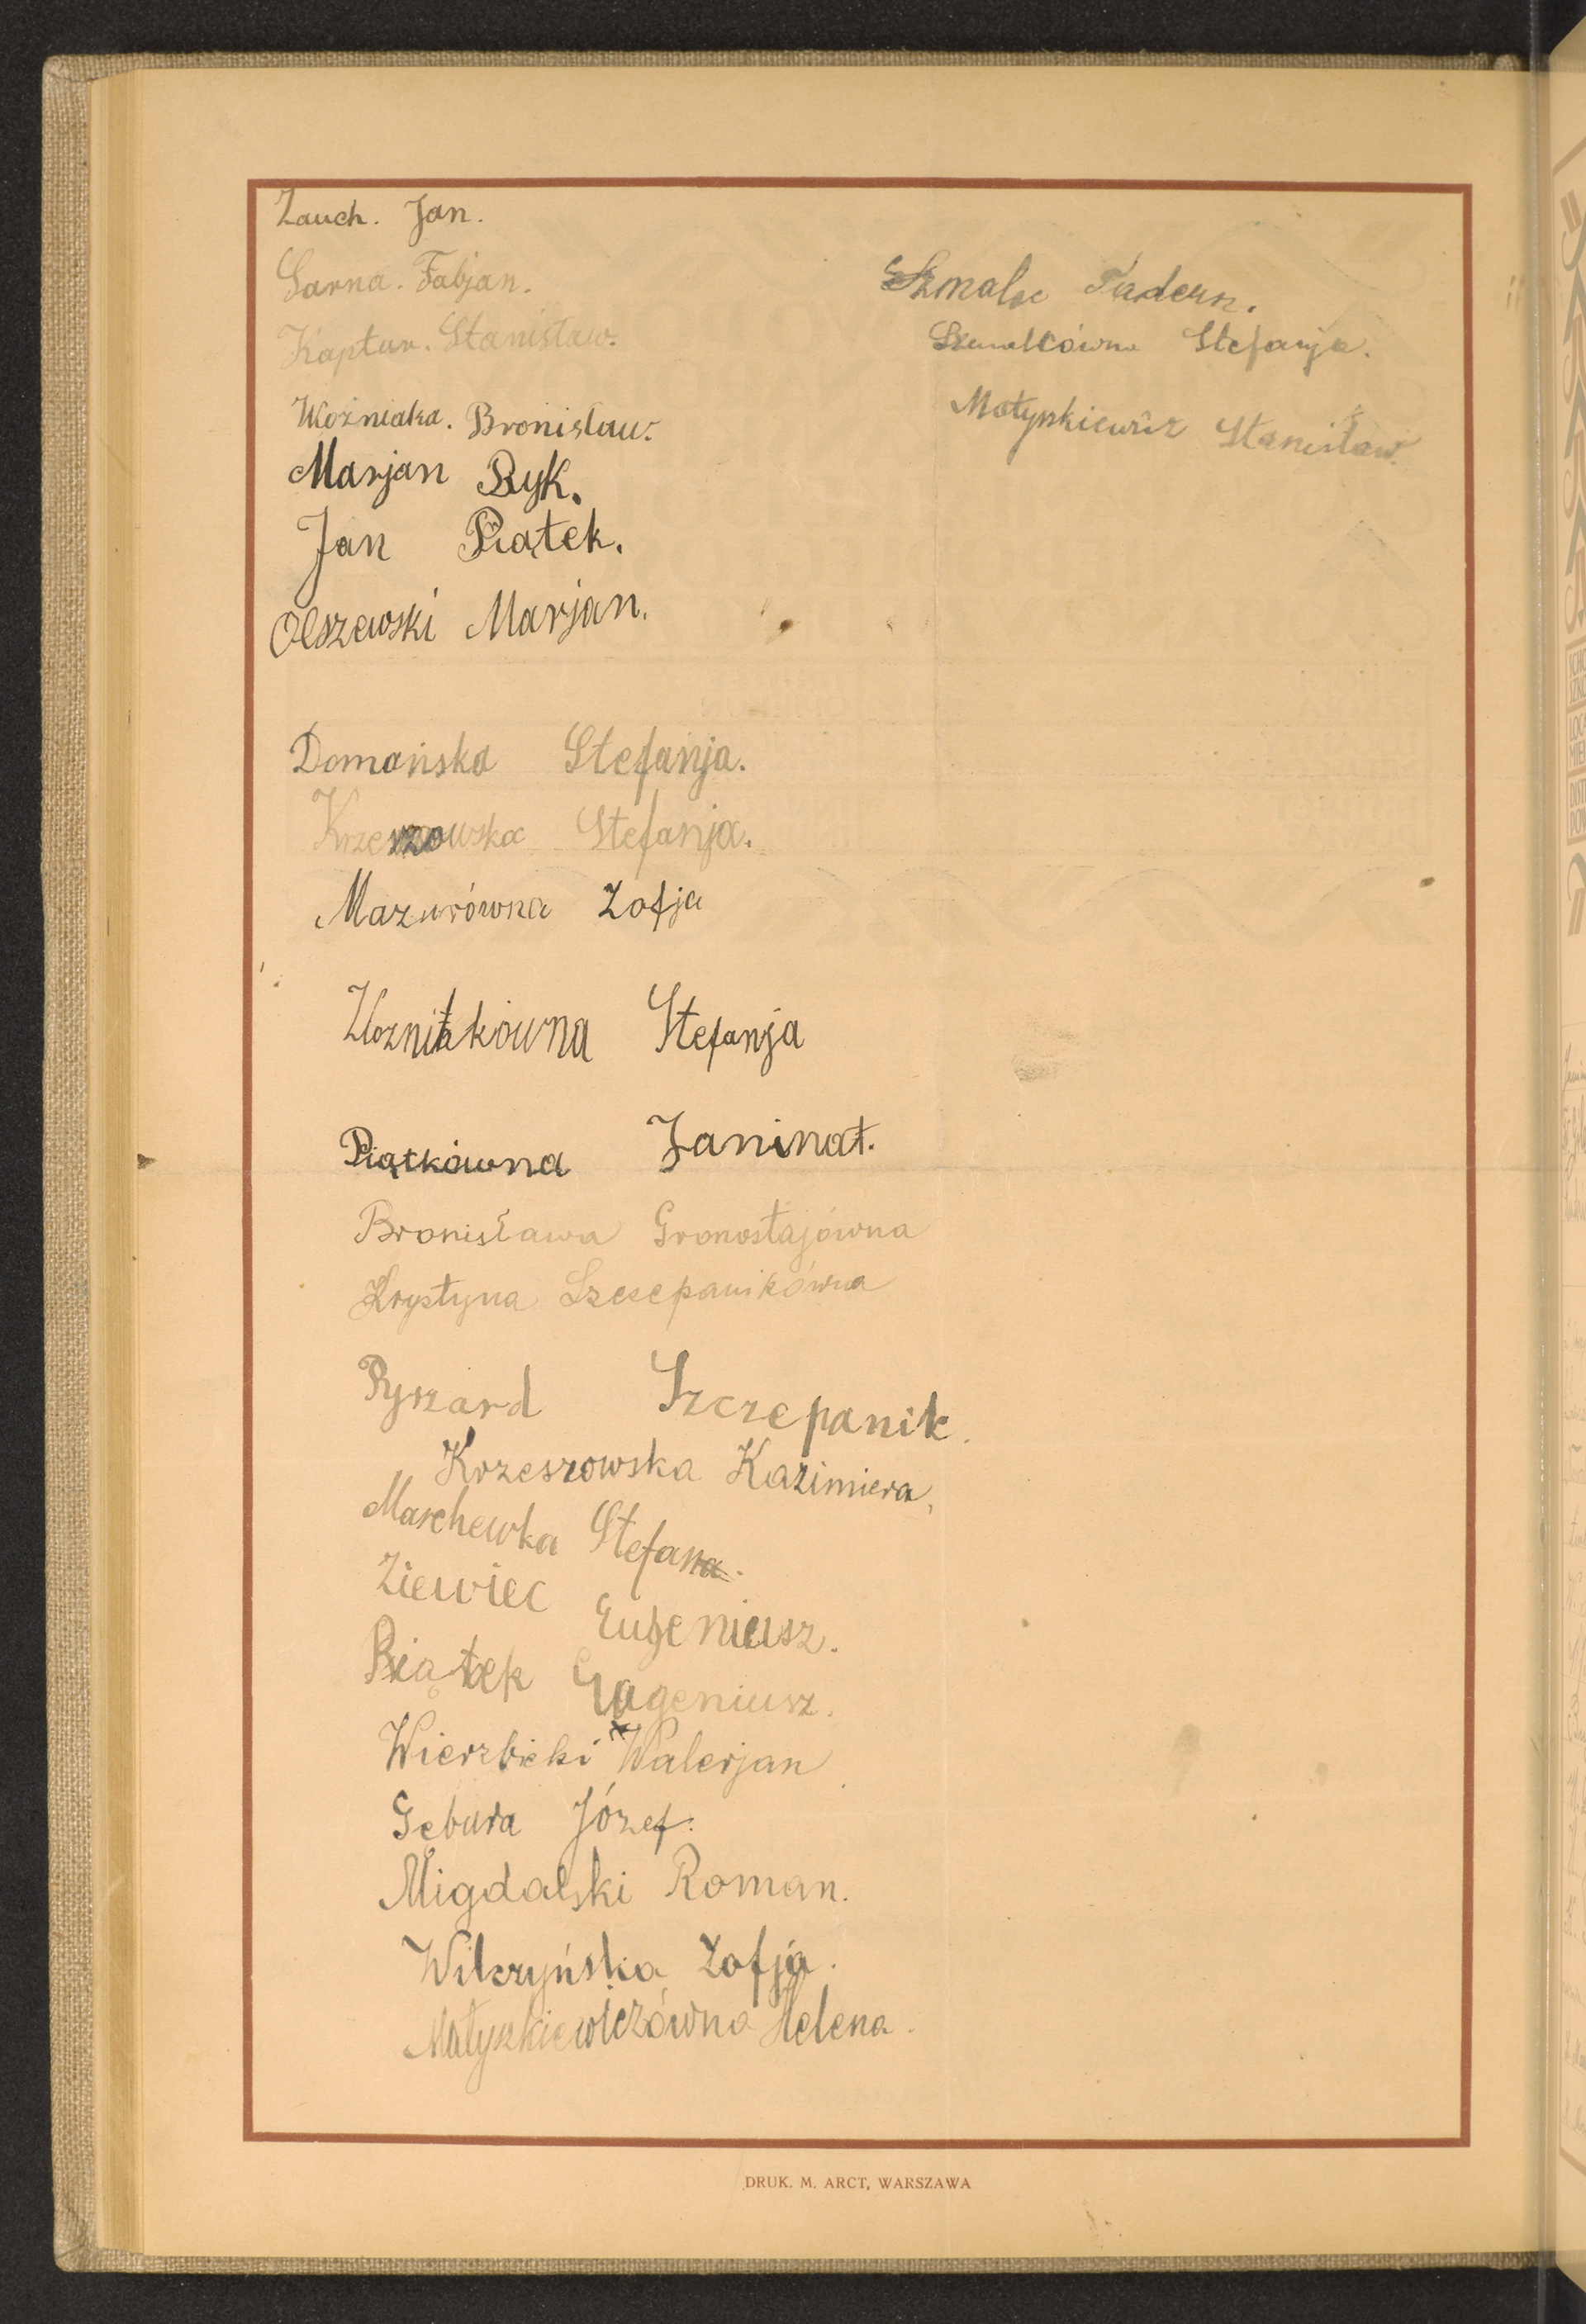 Zauch. Jan.
Sarna. Fabjan.
Kaptur. Stanisław.
Woźniaka. Bronisław.
Marjan Byk.
Jan Piątek.
Olszewski Marjan.
Domańska Stefanja.
Krzeszowska Stefanja.
Mazurówna Zofja
Woznikówna Stefanja
Piątkówna Janina.
Bronisława Gronostajówna
Krystyna Szczepanikówna
Ryszard Szczepanik.
Krzeszowska Kazimiera,
Marchewka Stefan.
Ziewiec Eugeniusz.
Piątek Eugeniusz.
Wierzbicki Walerjan
Gębura Józef.
Migdalski Roman.
Wilczyńska Zofja.
Matyszkiewiczówna Helena.
Szmalc Tadeusz.
Szmalcówna Stefanja.
Matyszkiewicz Stanisław.
DRUK. M. ARCT, WARSZAWA